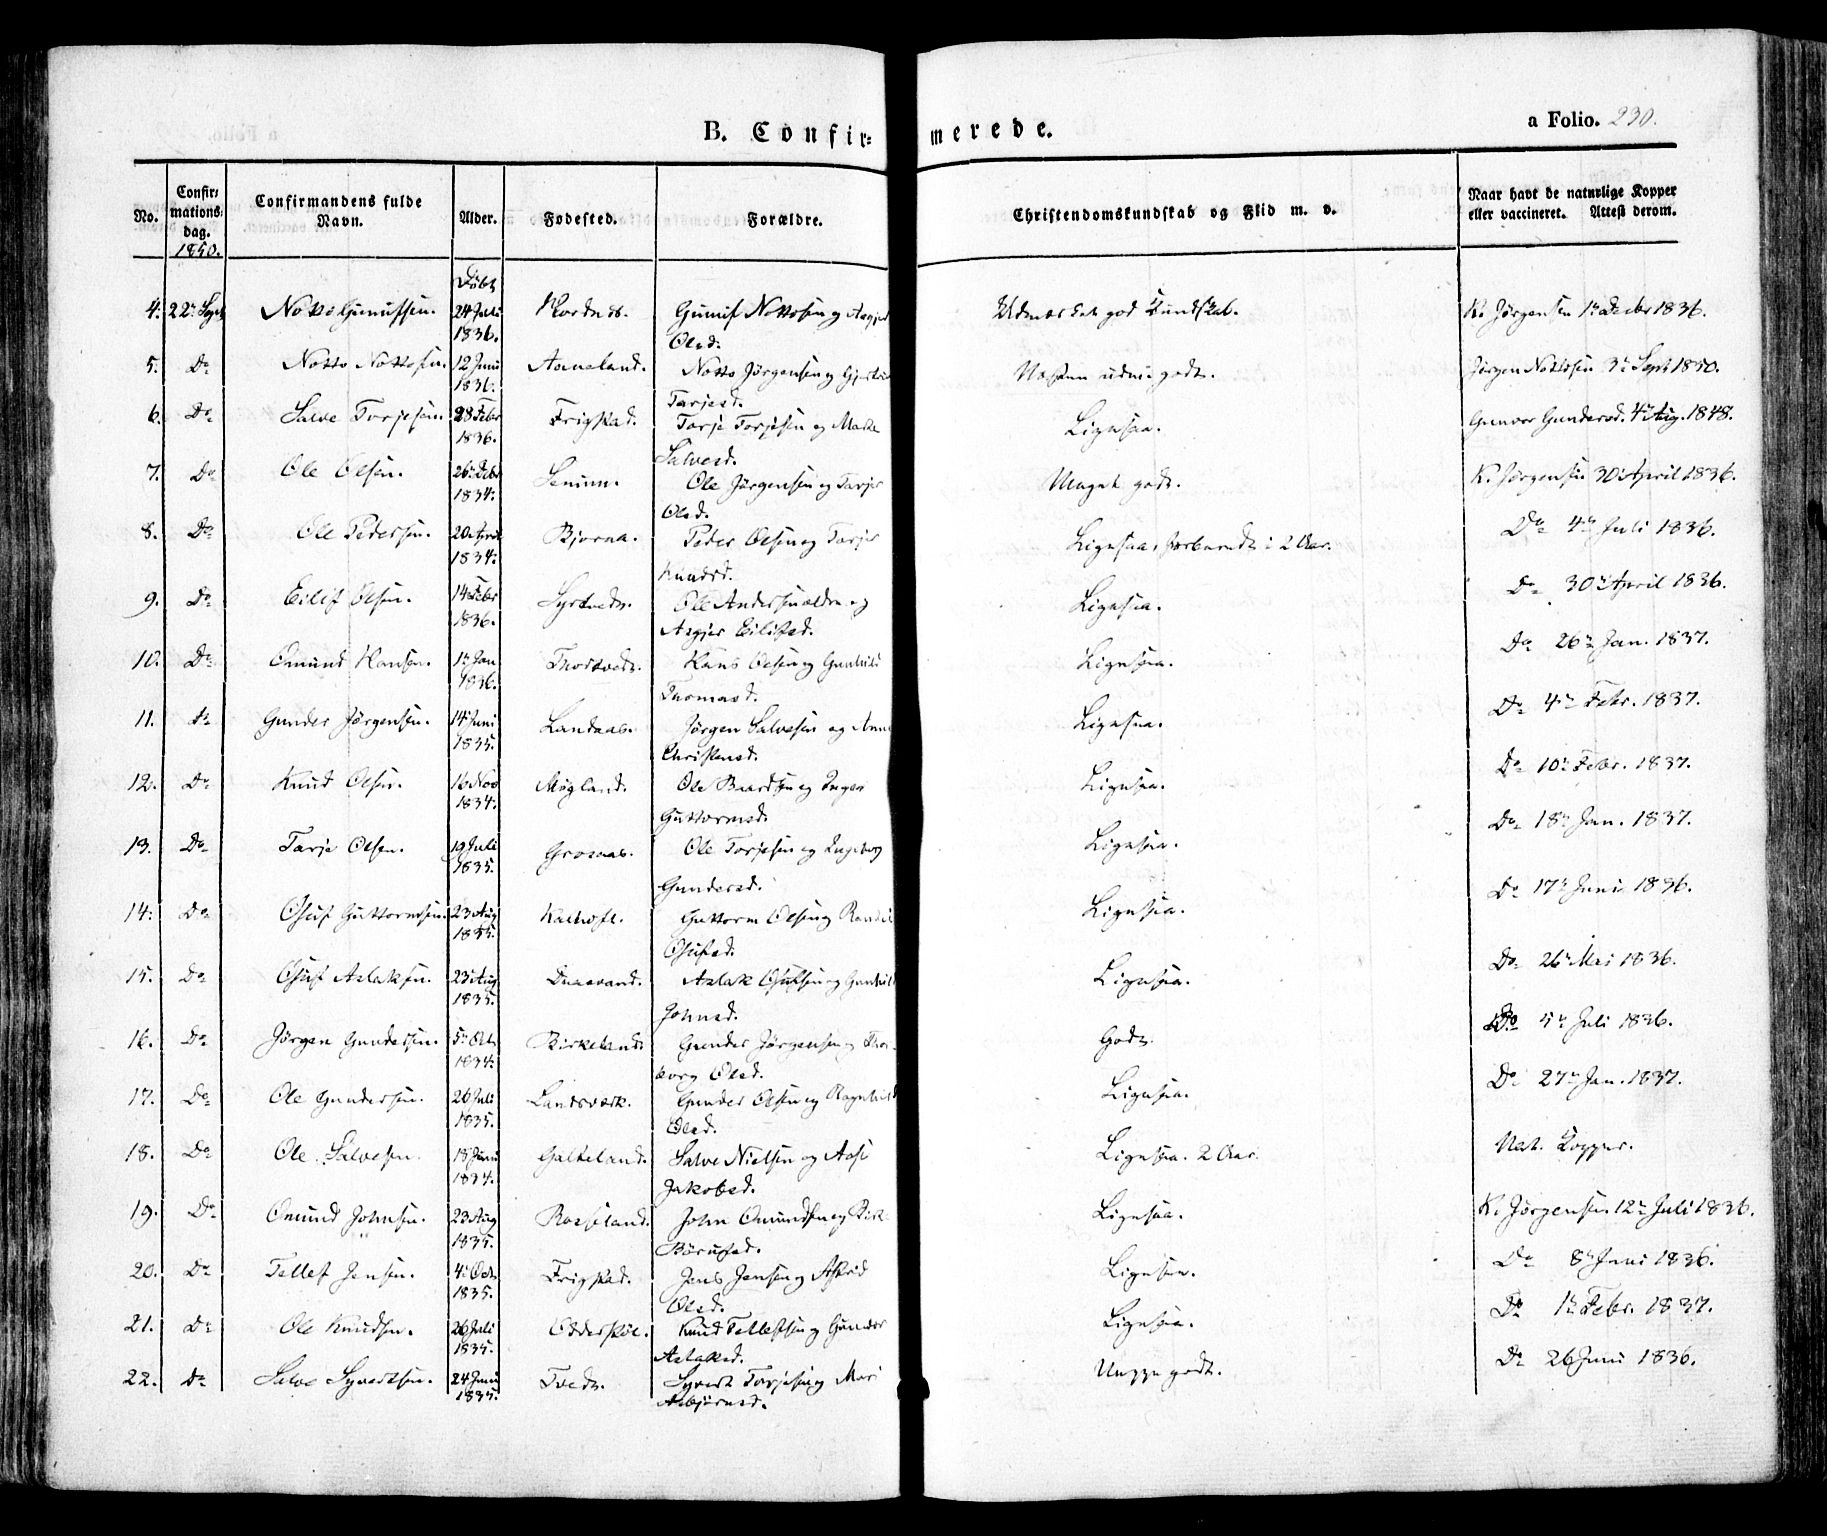 B. Confir- merede. a Folio. 230.
No. Confirmationsdag. 1850. Confirmandens fulde Navn. Alder. Fødested. Forældre. Christendomskundskab og Flid m. v. Naar havt de naturlige Kopper eller vaccineret. Attest derom.
Døbt
4. 22n Sept Notto Gunulfsen. 24 Juli Gunulf Nottosen og Aasgjer Udmærket god Kundskab. K. Jørgensen 1n Decbr 1836.
1836. Olsd.
5. Do Notto Nottosen. 12 Juni Aaneland. Notto Jørgensen og Næsten udm. godt. Jørgen Nottosen 3n Sept 1850.
1836. Tarjesd.
6. Do Salve Torjesen. 28 Febr Frigstad. Torje Torjesen og Ligesaa. Gunvor Gundersd. 4n Aug. 1848.
1836. Salvesd.
7. Do Ole Olsen. 26n Decbr Senum. Ole Jørgensen og Tarjer Meget godt. K. Jørgensen 30n April 1836.
1834. Olsd.
8. Do Ole Pedersen. 20 April Bjorva. Peder Olsen og Tarjer Ligesaa, forberedt i 2 Aar. Do 4n Juli 1836.
1834. Knudsd.
9. Do Eilif Olsen. 14 Febr Syrtvedt. Ole Andersen ældre og Ligesaa. Do 30n April 1836.
1836. Asgjer Eilifsd.
10. Do Omund Hansen. 1n Jan Thortvedt. Hans Olsen og Gunhild Ligesaa. Do 26n Jan. 1837.
1836. Thomasd.
11. Do Gunder Jørgensen. 14n Juni Landaas. Jørgen Salvesen og Anne Ligesaa. Do 4n Febr. 1837.
1835. Christensd.
12. Do Knud Olsen. 16 Nov Møgland. Ole Baardsen og Inger Ligesaa. Do 10n Febr. 1837.
1834. Guttormsd.
13. Do Tarje Olsen. 19 Juli Grosaas. Ole Torjesen og Ingeborg Ligesaa. Do 18n Jan. 1837.
1835. Gundersd.
14. Do Osuf Guttormsen. 23 Aug Kalhoft. Guttorm Olsen og Ligesaa. Do 17n Juni 1836.
1835. Osufsd.
15. Do Osuf Aslaksen. 23n Aug Aslak Osufsen og Gunhild Ligesaa. Do 26n Mai 1836.
1835. Johnsd.
16. Do Jørgen Gundersen. 5n Oct Birkeland. Gunder Jørgensen og Thor- Godt. Do 5n Juli 1836.
1834. borg Olsd.
17. Do Ole Gundersen. 26 Juli Landsværk. Gunder Olsen og Ragnhild Ligesaa. Do 27n Jan. 1837.
1835. Olsd.
18. Do Ole Salvesen. 18 Juni Galteland. Salve Nielsen og Aase Ligesaa. 2 Aar. Nat. Kopper.
1834. Jakobsd.
19. Do Omund Johnsen. 23 Aug Rosseland. John Omundsen og Ligesaa. K. Jørgensen 12n Juli 1836.
1835. Børufsd.
20. Do Tellef Jensen. 4n Oct Frigstad. Jens Jensen og Astrid Ligesaa. Do 8n Juni 1836.
1835. Olsd.
21. Do Ole Knudsen. 26 Juli Odderstøl. Knud Tellefsen og Gunvor Ligesaa. Do 1n Febr. 1837.
1835. Aslaksd.
22. Do Salve Syvertsen. 24 Juni Tvedt. Syvert Torjesen og Mari godt. Do 26 Juni 1836.
1835. Asbjørnsd.